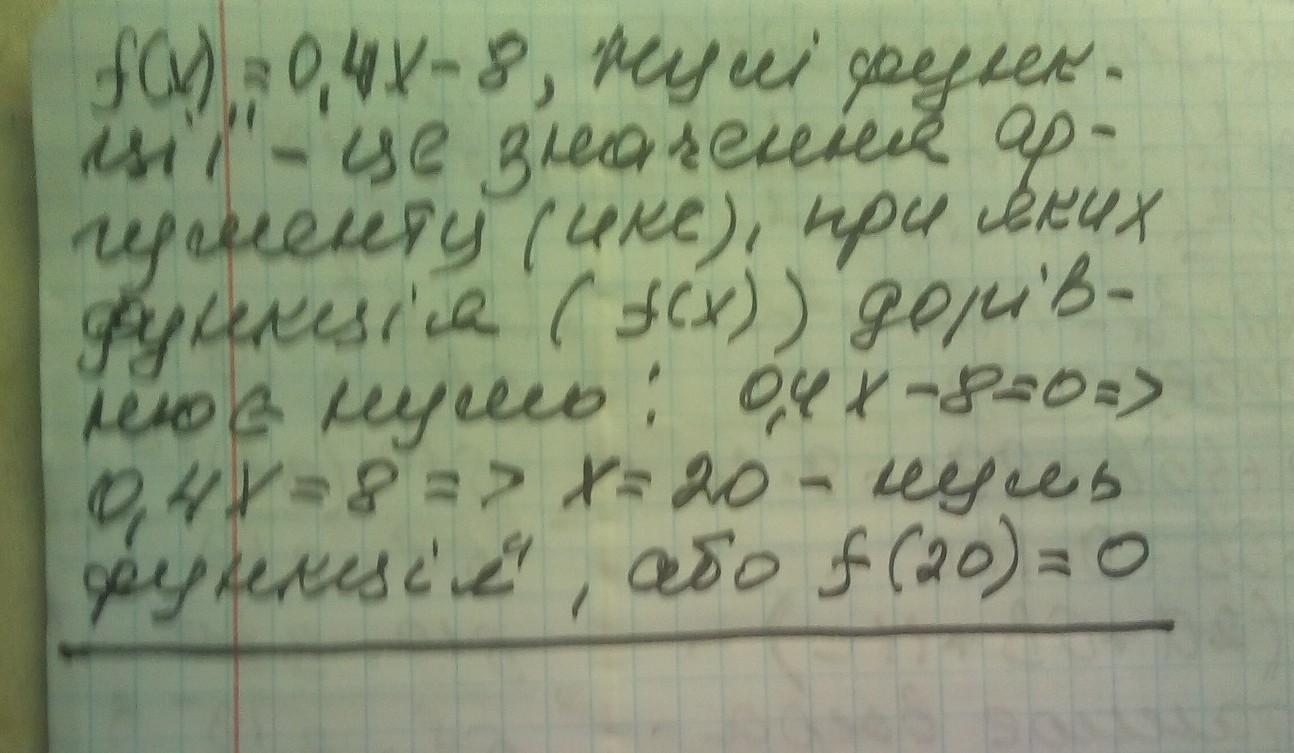 f(x) = 0,4x - 8, нулі функ-
ції - це значення ар-
гументу (икс), при яких
функція (f(x)) дорів-
нює нулю: 0,4x - 8 = 0 =>
0,4x = 8 => x = 20 - нуль
функції, або f(20) = 0